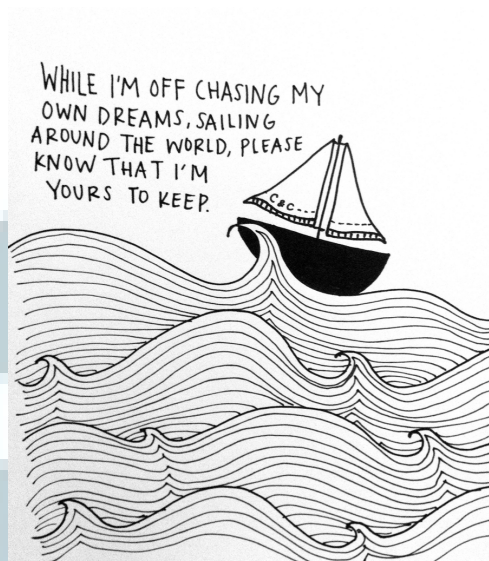 WHILE I'M OFF CHASING MY
OWN DREAMS, SAILING
AROUND THE WORLD, PLEASE
KNOW THAT I'M
YOURS TO KEEP.
C & C